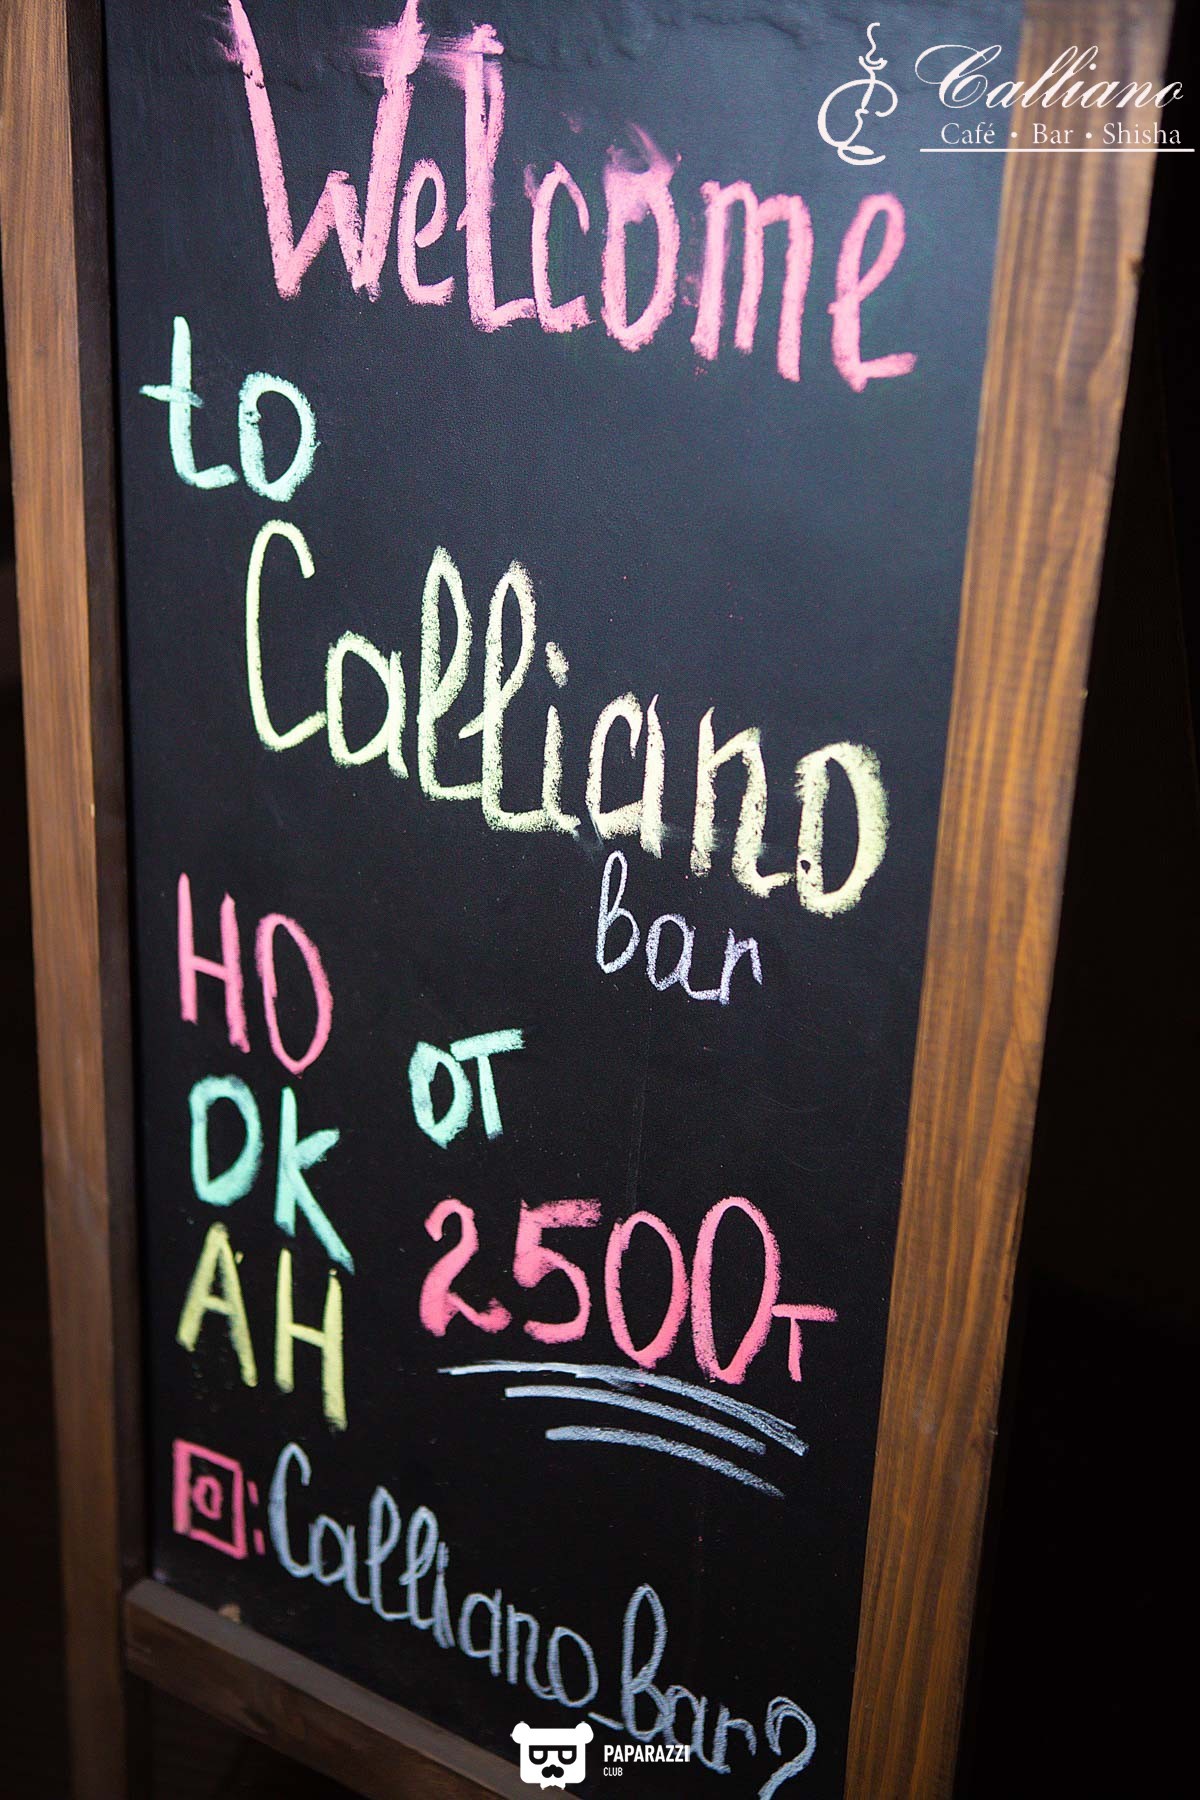 Calliano
Café • Bar • Shisha
Welcome
to
Calliano
bar
НО
ОК
АН
от
2500т
: Calliano_bar2
PAPARAZZI
CLUB